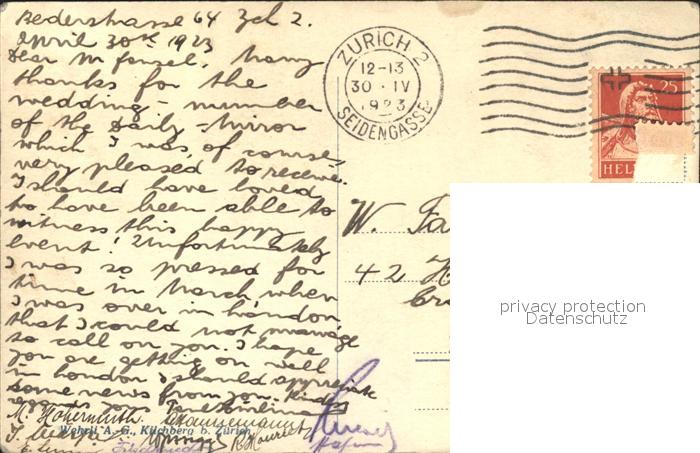 Bederstrasse 64 Zch 2.
April 30th 1923
Dear Mr Fansel, Many
thanks for the
wedding-number
of the Daily-Mirror
which I was, of course
very pleased to receive.
I should have loved
to have been able to
witness this happy
event! Unfortunately
I was so pressed for
time in March when
I was over in London
that I could not manage
to call on you. I hope
you are getting on well
in London I should appreciate
some news from you. Kind
regards
M. Hohermuth.
Wehrli A.-G., Kilchberg b. Zürich
ZÜRICH 2
12-13
30·IV
1923
SEIDENGASSE
25
HEL
W. Fa
42 H
privacy protection
Datenschutz